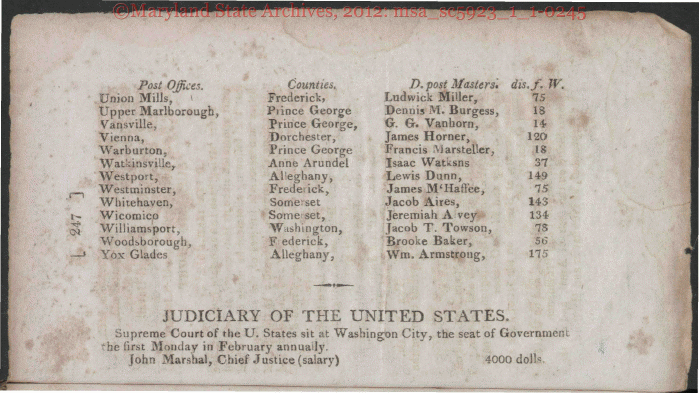 ©Maryland State Archives, 2012. msa_sc5923_1_1-0245
Post Offices. Counties. D. post Masters. dis. f. W.
Union Mills, Frederick, Ludwick Miller, 75
Upper Marlborough, Prince George Dennis M. Burgess, 18
Vansville, Prince George, G. G. Vanhorn, 14
Vienna, Dorchester, James Horner, 120
Warburton, Prince George Francis Marsteller, 18
Watkinsville, Anne Arundel Isaac Watksns 37
Westport, Alleghany, Lewis Dunn, 149
Westminster, Frederick, James M'Haffee, 75
Whitehaven, Somerset Jacob Aires, 143
Wicomico Somerset, Jeremiah A vey 134
Williamsport, Washington, Jacob T. Towson, 78
Woodsborough, F ederick, Brooke Baker, 56
Yox Glades Alleghany, Wm. Armstrong, 175
[ 247 ]
JUDICIARY OF THE UNITED STATES.
Supreme Court of the U. States sit at Washingon City, the seat of Government
the first Monday in February annually.
John Marshal, Chief Justice (salary) 4000 dolls.